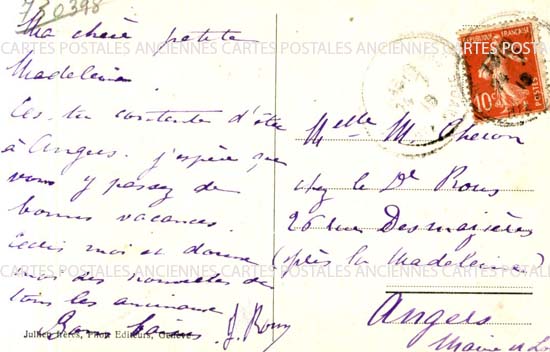 730398
Ma chère petite
Madeleine
Es-tu contente d'être
à Angers. j'espère que
vous y passez de
bonnes vacances.
Ecris moi et donne
moi des nouvelles de
tous les animaux
Bons baisers J. Roux
Jullien frères, Phot. Editeurs, Genève
Melle M. Cheron
chez le Dr Roux
26 rue Desmazières
(près la Madeleine)
Angers
Maine et Lo
REPUBLIQUE FRANÇAISE
10c
POSTES
CARTES POSTALES ANCIENNES CARTES POSTALES ANCIENNES CARTES POSTALES ANCIENNES